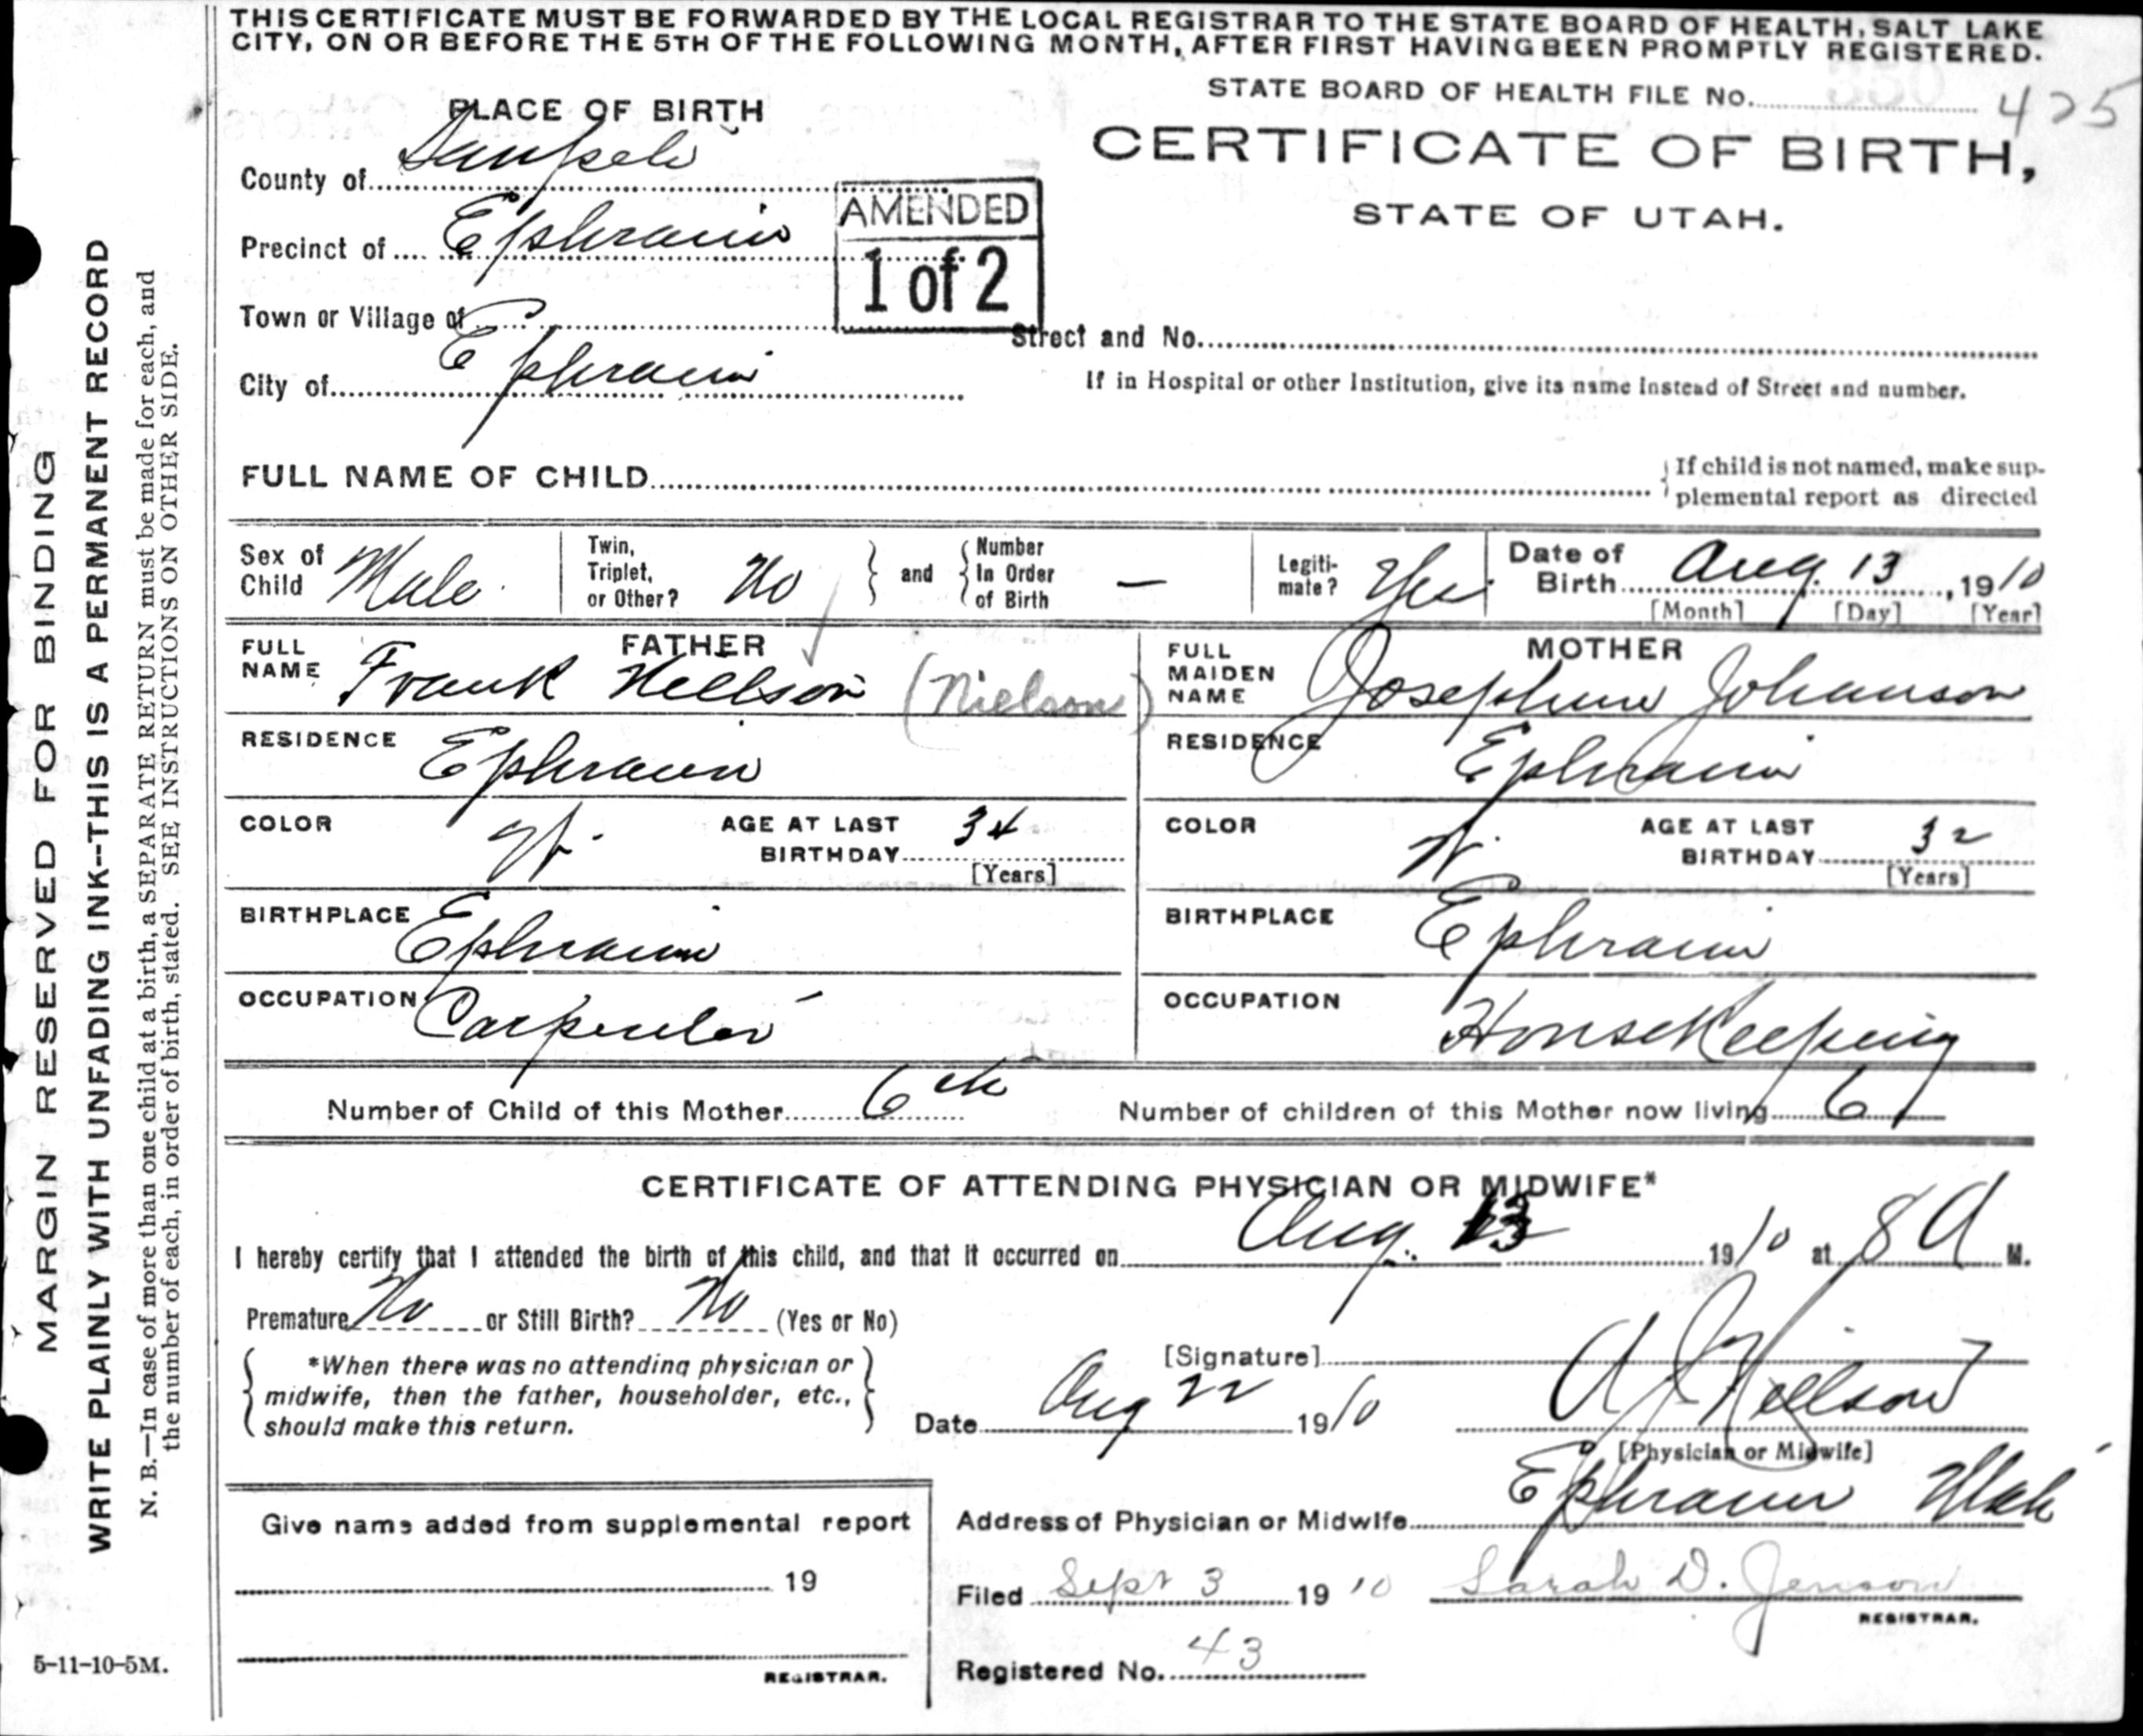 THIS CERTIFICATE MUST BE FORWARDED BY THE LOCAL REGISTRAR TO THE STATE BOARD OF HEALTH, SALT LAKE
CITY, ON OR BEFORE THE 5TH OF THE FOLLOWING MONTH, AFTER FIRST HAVING BEEN PROMPTLY REGISTERED.
STATE BOARD OF HEALTH FILE No. 425
PLACE OF BIRTH
CERTIFICATE OF BIRTH,
STATE OF UTAH.
County of Sanpete
Precinct of Ephraim
AMENDED
1 of 2
Town or Village of
Street and No.
City of Ephraim
If in Hospital or other Institution, give its name instead of Street and number.
FULL NAME OF CHILD
If child is not named, make sup-
plemental report as directed
Sex of Child Male
Twin, Triplet, or Other? No
and Number In Order of Birth —
Legiti-mate? Yes
Date of Birth Aug. 13, 1910
[Month] [Day] [Year]
FATHER
FULL NAME Frank Neilson (Nielson)
RESIDENCE Ephraim
COLOR W.
AGE AT LAST BIRTHDAY 34
[Years]
BIRTHPLACE Ephraim
OCCUPATION Carpenter
MOTHER
FULL MAIDEN NAME Josephine Johanson
RESIDENCE Ephraim
COLOR W.
AGE AT LAST BIRTHDAY 32
[Years]
BIRTHPLACE Ephraim
OCCUPATION HouseKeeping
Number of Child of this Mother 6th
Number of children of this Mother now living 6
CERTIFICATE OF ATTENDING PHYSICIAN OR MIDWIFE*
I hereby certify that I attended the birth of this child, and that it occurred on Aug. 13 1910 at 8 A M.
Premature No or Still Birth? No (Yes or No)
*When there was no attending physician or
midwife, then the father, householder, etc.,
should make this return.
[Signature]
Date Aug 22 1910
Neilson
[Physician or Midwife]
Address of Physician or Midwife Ephraim Utah
Give name added from supplemental report
19
REGISTRAR.
Filed Sept 3 1910 Sarah D. Jenson
REGISTRAR.
Registered No. 43
MARGIN RESERVED FOR BINDING
WRITE PLAINLY WITH UNFADING INK--THIS IS A PERMANENT RECORD
N. B.—In case of more than one child at a birth, a SEPARATE RETURN must be made for each, and
the number of each, in order of birth, stated. SEE INSTRUCTIONS ON OTHER SIDE.
5-11-10-5M.